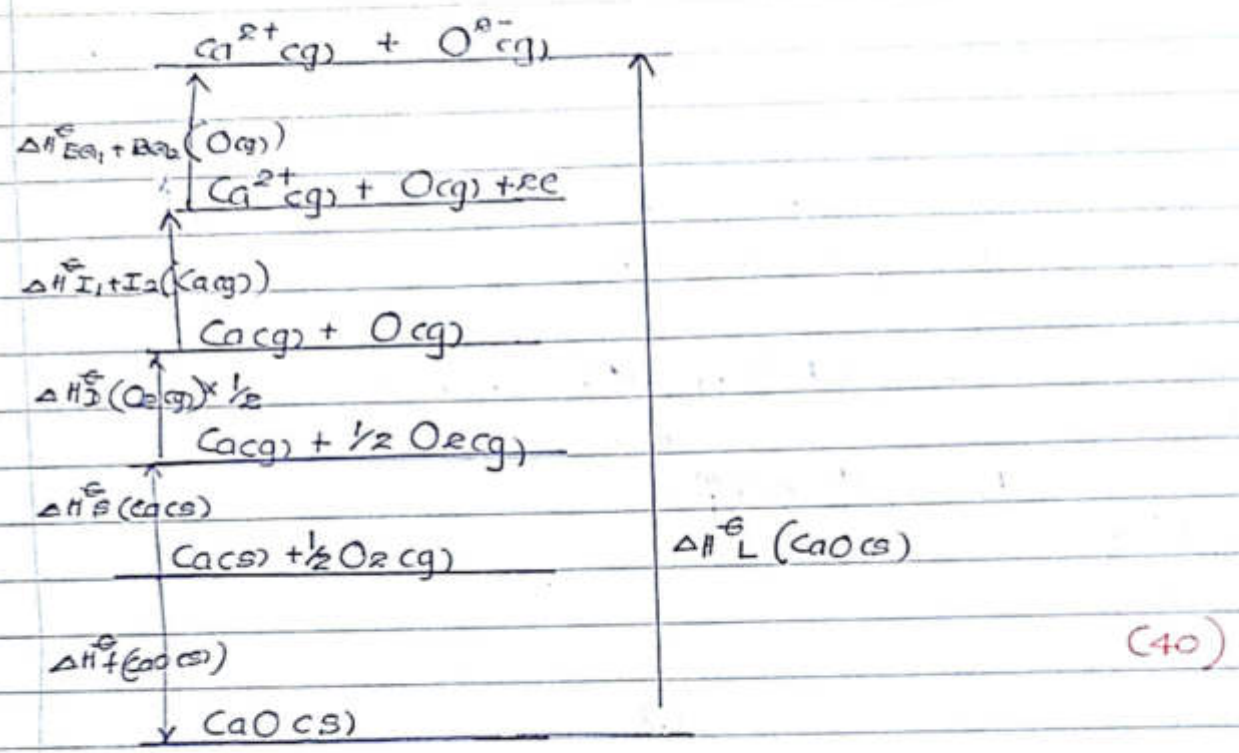 Ca²⁺(g) + O²⁻(g)
ΔH°EG₁ + EG₂ (O(g))
Ca²⁺(g) + O(g) + 2e
ΔH°I₁+I₂(Ca(g))
Ca(g) + O(g)
ΔH°D(O₂(g))×½
Ca(g) + ½ O₂(g)
ΔH°S(Ca(s))
Ca(s) + ½ O₂(g)
ΔH°L (CaO(s))
ΔH°f(CaO(s))
(40)
CaO(s)